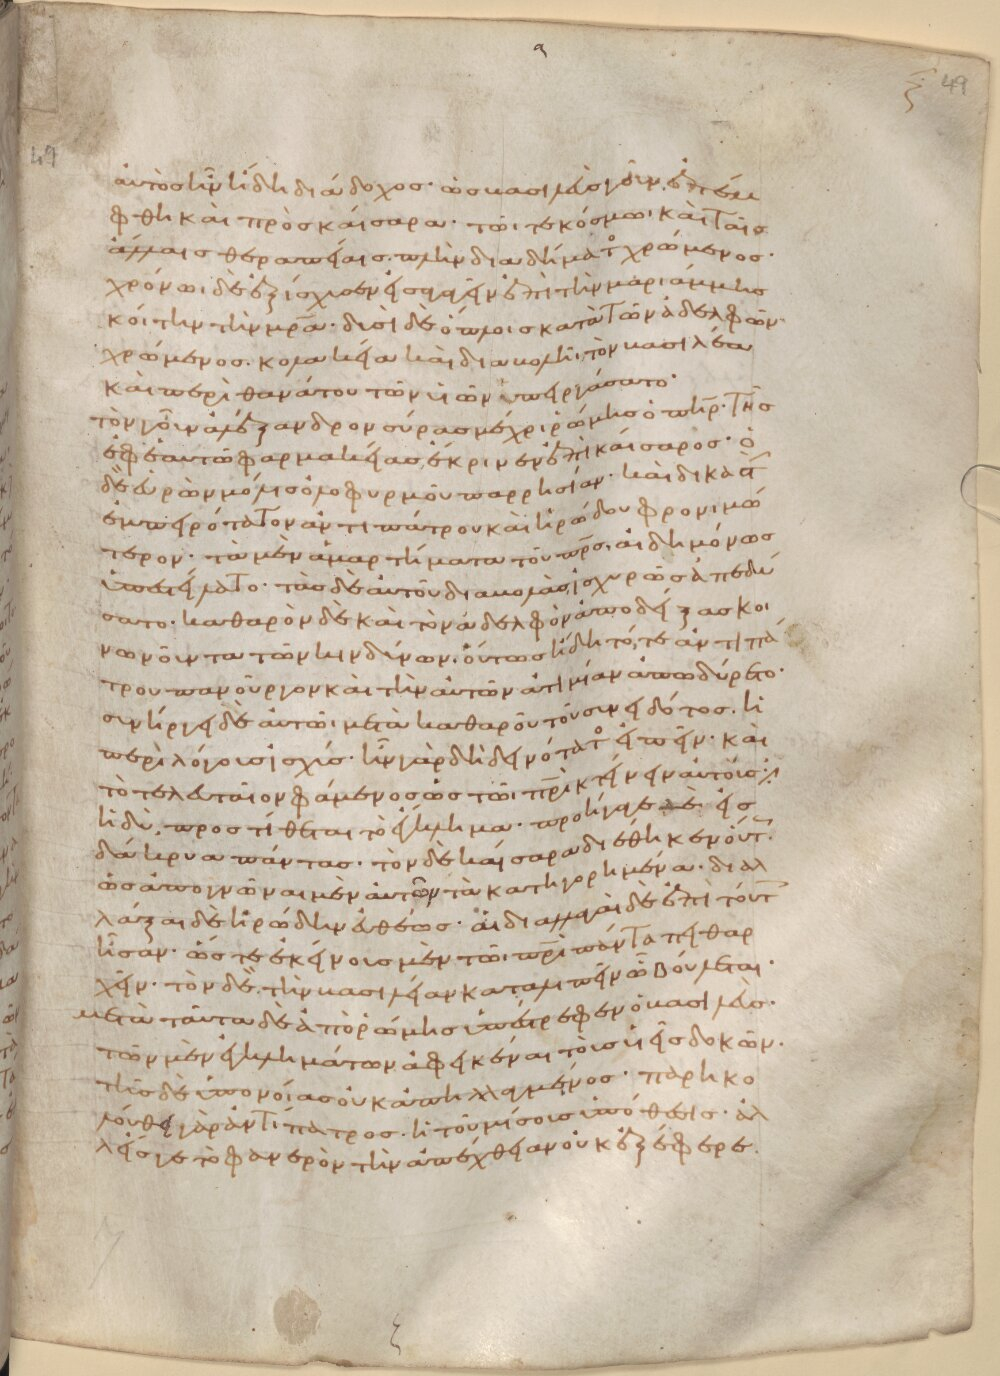 αὐτὸς ἦν ἤδη διάδοχος· ὡς βασιλεὺς γοῦν ἐπέμ
φθη καὶ πρὸς καίσαρα· τῶι τε κόσμωι καὶ ταῖς
ἄλλαις θεραπείαις· πλὴν διαδήματο χρώμενος·
χρόνωι δὲ ἐξίσχυσεν εἰσαγαγεῖν ἐπὶ τὴν μαριάμμης
κοίτην τὴν μρα· δυσὶ δὲ ὅπλοις κατὰ τῶν ἀδελφῶν·
χρώμενος· κολακεία καὶ διαβολῆι, τὸν βασιλέα
καὶ περὶ θανάτου τῶν υἱῶν ὑπειργάσατο·
τὸν γοῦν ἀλέξανδρον σύρας μέχρι ῥώμης ὁ πηρ· τῆς
ἐφ ἑαυτῶ φαρμακείας, ἔκρινεν ἐπὶ καίσαρος· ὁ
δὲ εὑρὼν μόλις ὀλοφυρμοῦ παρρησίαν· καὶ δικαστ
ἐμπειρότατον ἀντιπάτρου καὶ ἡρώδου φρονιμώ
τερον· τὰ μὲν ἁμαρτήματα τοῦ πρς, αἰδημόνως
ὑπεστείλατο· τὰς δὲ αὐτοῦ διαβολὰς, ἰσχυρῶς ἀπελύ
σατο· καθαρὸν δὲ καὶ τὸν ἀδελφὸν ἀποδείξας κοι
νωνοῦντα τῶν κινδύνων, οὕτως ἤδη τό τε ἀντιπά
τρου πανοῦργον καὶ τὴν αὐτῶν ἀτιμίαν ἀπωδύρετο·
συνήργει δὲ αὐτῶι μετὰ καθαροῦ τοῦ συνειδότος· ἡ
περὶ λόγους ἰσχύς· ἦν γὰρ δὴ δεινότατο εἰπεῖν· καὶ
τὸ τελευταῖον φάμενος ὡς τῶι πρι κτείνειν αὐτοὺς
ἡδὺ, προστίθεται τὸ ἔγκλημα· προήγαγε εἰς
δάκρυα πάντας· τὸν δὲ καίσαρα διέθηκεν οὕτ
ὡς ἀπογνῶναι μὲν αὐτῶν τὰ κατηγορημένα· διαλ
λάξαι δὲ ἡρώδην εὐθέως· αἱ διαλλαγαὶ δὲ ἐπὶ τούτ
ἦσαν· ὥστε ἐκείνους μὲν τῶι πρι πάντα πειθαρ
χεῖν· τὸν δὲ, τὴν βασιλείαν καταλιπεῖν ὧ βούλεται·
μετὰ ταῦτα δὲ ἀπὸ ῥώμης ὑπέστρεφεν ὁ βασιλεὺς·
τῶν μὲν ἐγκλημάτων ἀφεικέναι τοὺς υἱεῖς δοκῶν·
τῆς δὲ ὑπονοίας οὐκ ἀπηλλαγμένος· παρηκο
λούθει γὰρ ἀντίπατρος· ἡ τοῦ μίσους ὑπόθεσις· ἀλ
λ εἴς γε τὸ φανερὸν τὴν ἀπέχθειαν οὐκ ἐξέφερε·
49
49